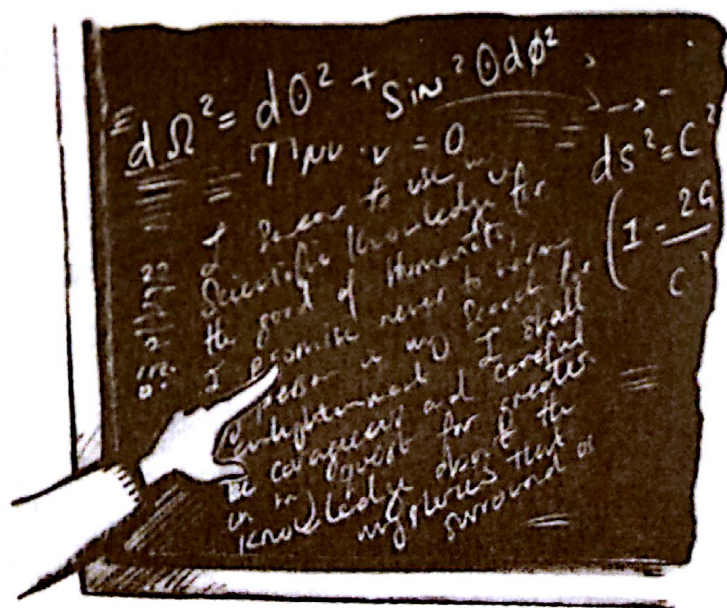 dΩ² = dθ² + sin² θdφ²
T^μν ;ν = 0
ds² = C²
(1 - 2G
C
I swear to use my
Scientific Knowledge for
the good of Humanity,
I promise never to harm
a person in my Search for
enlightenment. I shall
be courageous and careful
in my quest for greater
knowledge about the
mysteries that
surround